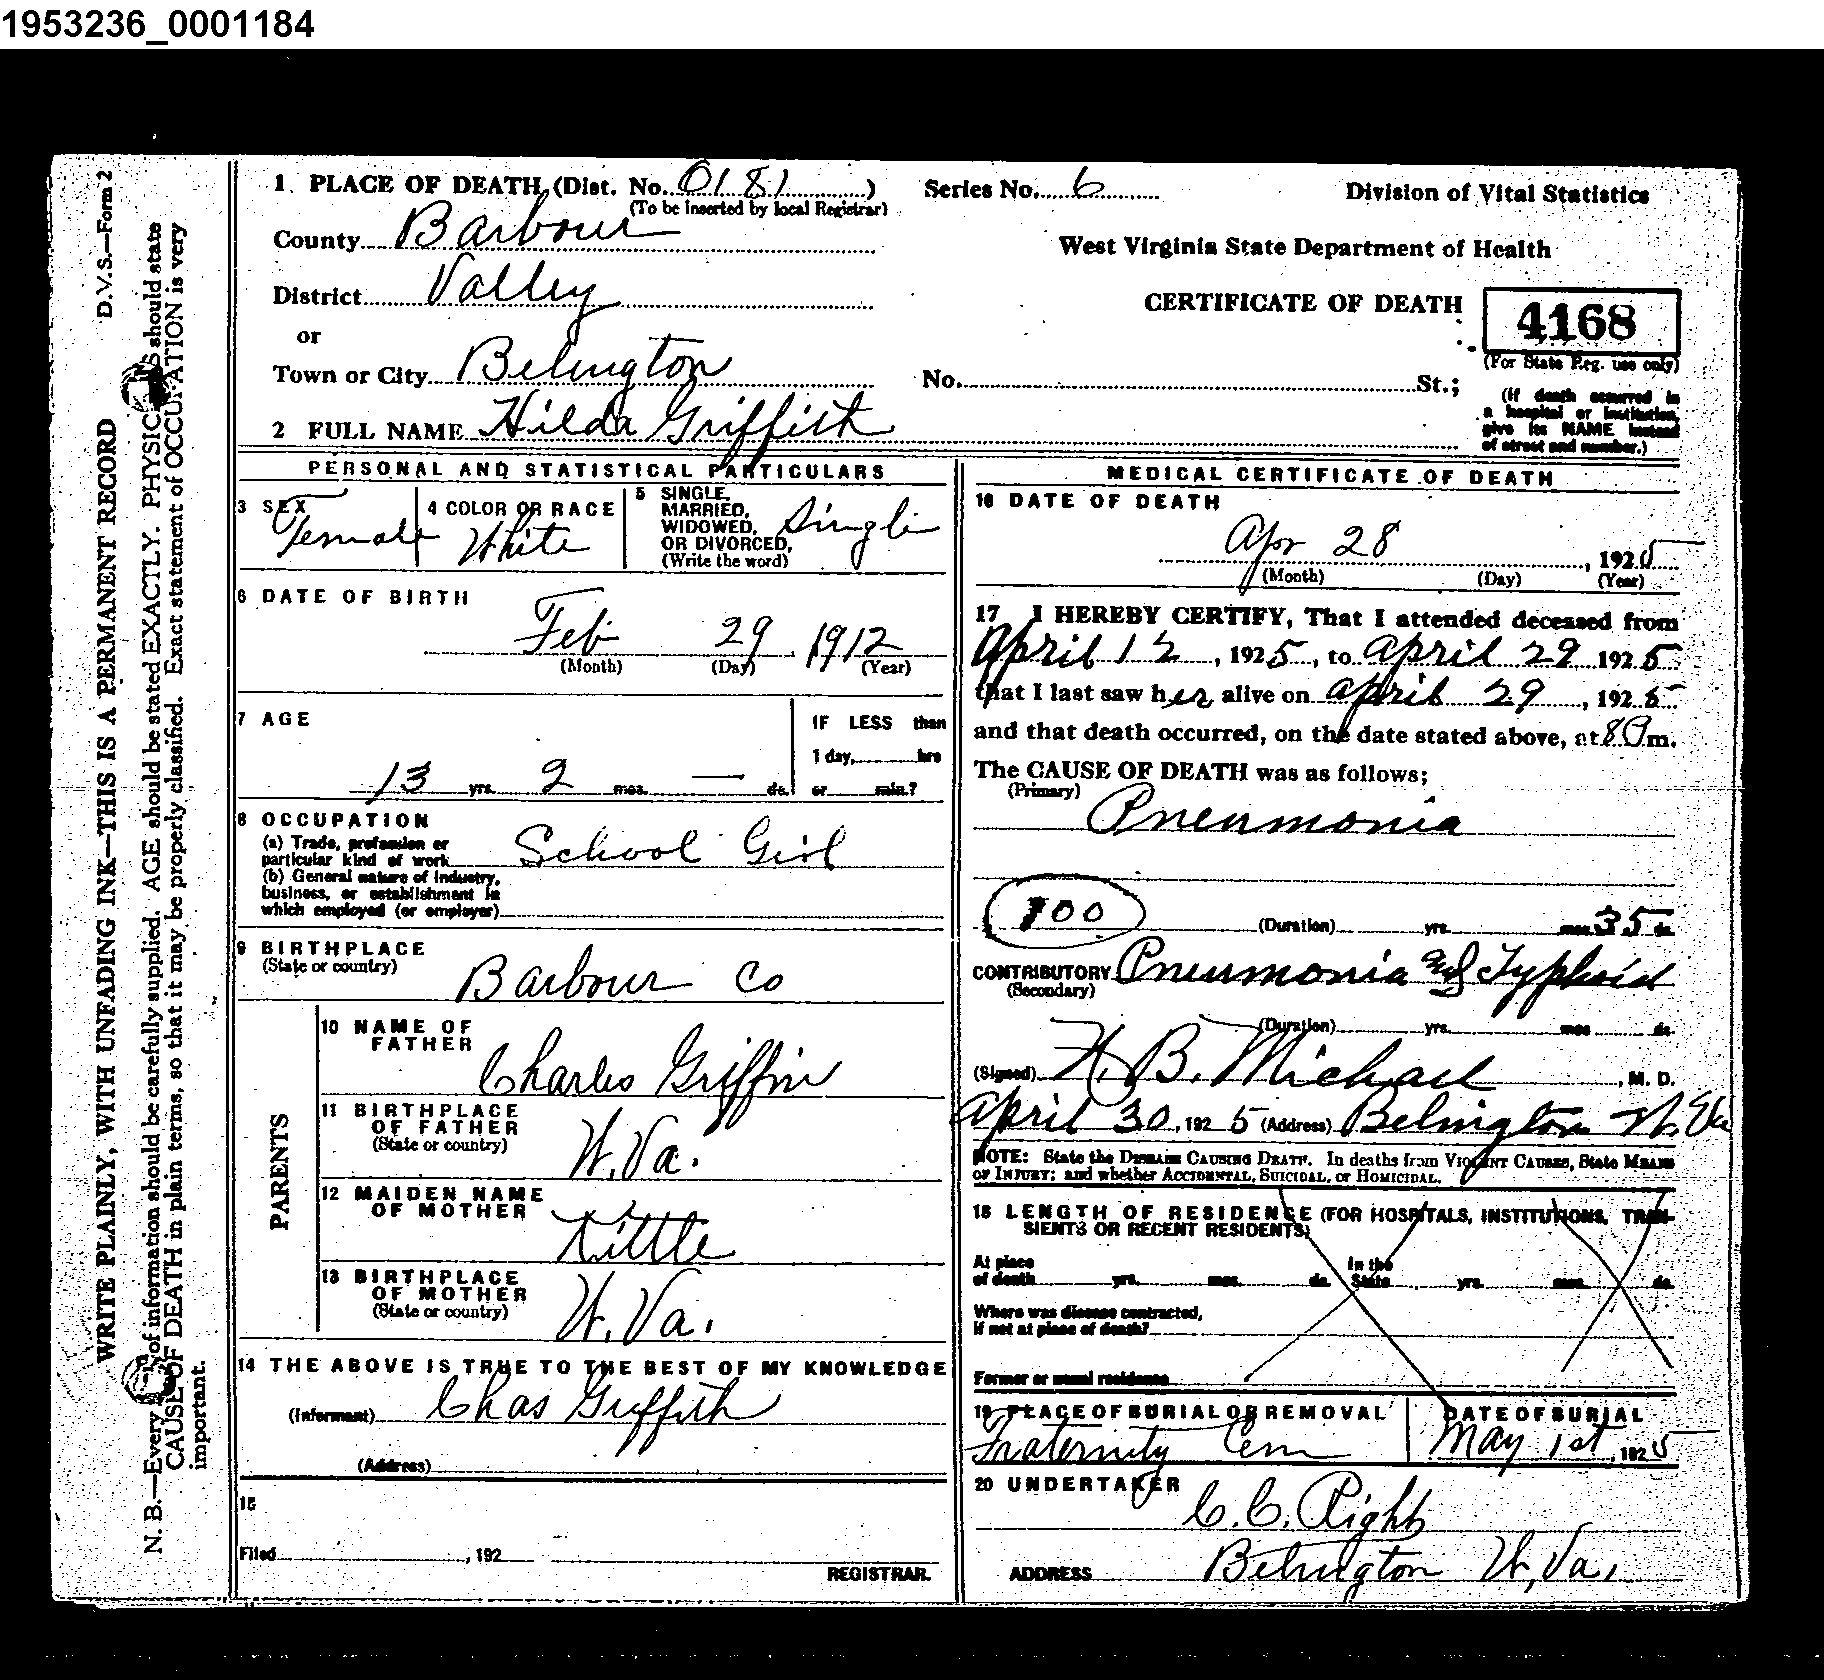 1953236_0001184
D.V.S.—Form 2
WRITE PLAINLY, WITH UNFADING INK—THIS IS A PERMANENT RECORD
N. B.—Every of information should be carefully supplied. AGE should be stated EXACTLY. PHYSIC should state
CAUSE OF DEATH in plain terms, so that it may be properly classified. Exact statement of OCCUPATION is very
important.
1. PLACE OF DEATH, (Dist. No. 0181)
(To be inserted by local Registrar)
Series No. 6
Division of Vital Statistics
County Barbour
West Virginia State Department of Health
District Valley
CERTIFICATE OF DEATH
4168
(For State Reg. use only)
or
Town or City Belington
No. St.;
(If death occurred in
a hospital or institution,
give its NAME instead
of street and number.)
2 FULL NAME Hilda Griffith
PERSONAL AND STATISTICAL PARTICULARS
3 SEX Female
4 COLOR OR RACE White
5 SINGLE,
MARRIED,
WIDOWED,
OR DIVORCED,
(Write the word)
Single
6 DATE OF BIRTH
Feb 29 1912
(Month) (Day) (Year)
7 AGE
13 yrs. 2 mos. — ds.
IF LESS than
1 day, hrs
or min.?
8 OCCUPATION
(a) Trade, profession or
particular kind of work School Girl
(b) General nature of industry,
business, or establishment in
which employed (or employer)
9 BIRTHPLACE
(State or country)
Barbour Co
PARENTS
10 NAME OF
FATHER
Charles Griffin
11 BIRTHPLACE
OF FATHER
(State or country)
W. Va.
12 MAIDEN NAME
OF MOTHER
Kittle
13 BIRTHPLACE
OF MOTHER
(State or country)
W. Va.
14 THE ABOVE IS TRUE TO THE BEST OF MY KNOWLEDGE
(Informant) Chas Griffith
(Address)
15
Filed , 192
REGISTRAR.
MEDICAL CERTIFICATE OF DEATH
16 DATE OF DEATH
Apr 28 , 1925
(Month) (Day) (Year)
17 I HEREBY CERTIFY, That I attended deceased from
April 12, 1925, to April 29 1925
that I last saw her alive on April 29, 1925
and that death occurred, on the date stated above, at m.
The CAUSE OF DEATH was as follows;
(Primary)
Pneumonia
100
(Duration) yrs. mos. 35 ds.
CONTRIBUTORY Pneumonia and Typhoid
(Secondary)
(Duration) yrs. mos. ds.
(Signed) H. B. Michael, M. D.
April 30, 1925 (Address) Belington W. Va
NOTE: State the DISEASE CAUSING DEATH. In deaths from VIOLENT CAUSES, State MEANS
OF INJURY; and whether ACCIDENTAL, SUICIDAL, or HOMICIDAL.
18 LENGTH OF RESIDENCE (FOR HOSPITALS, INSTITUTIONS, TRAN-
SIENTS OR RECENT RESIDENTS)
At place
of death yrs. mos. ds.
In the
State yrs. mos. ds.
Where was disease contracted,
if not at place of death?
Former or usual residence
19 PLACE OF BURIAL OR REMOVAL
Fraternity Cem
DATE OF BURIAL
May 1st, 1925
20 UNDERTAKER
C. C. Right
ADDRESS Belington W. Va.